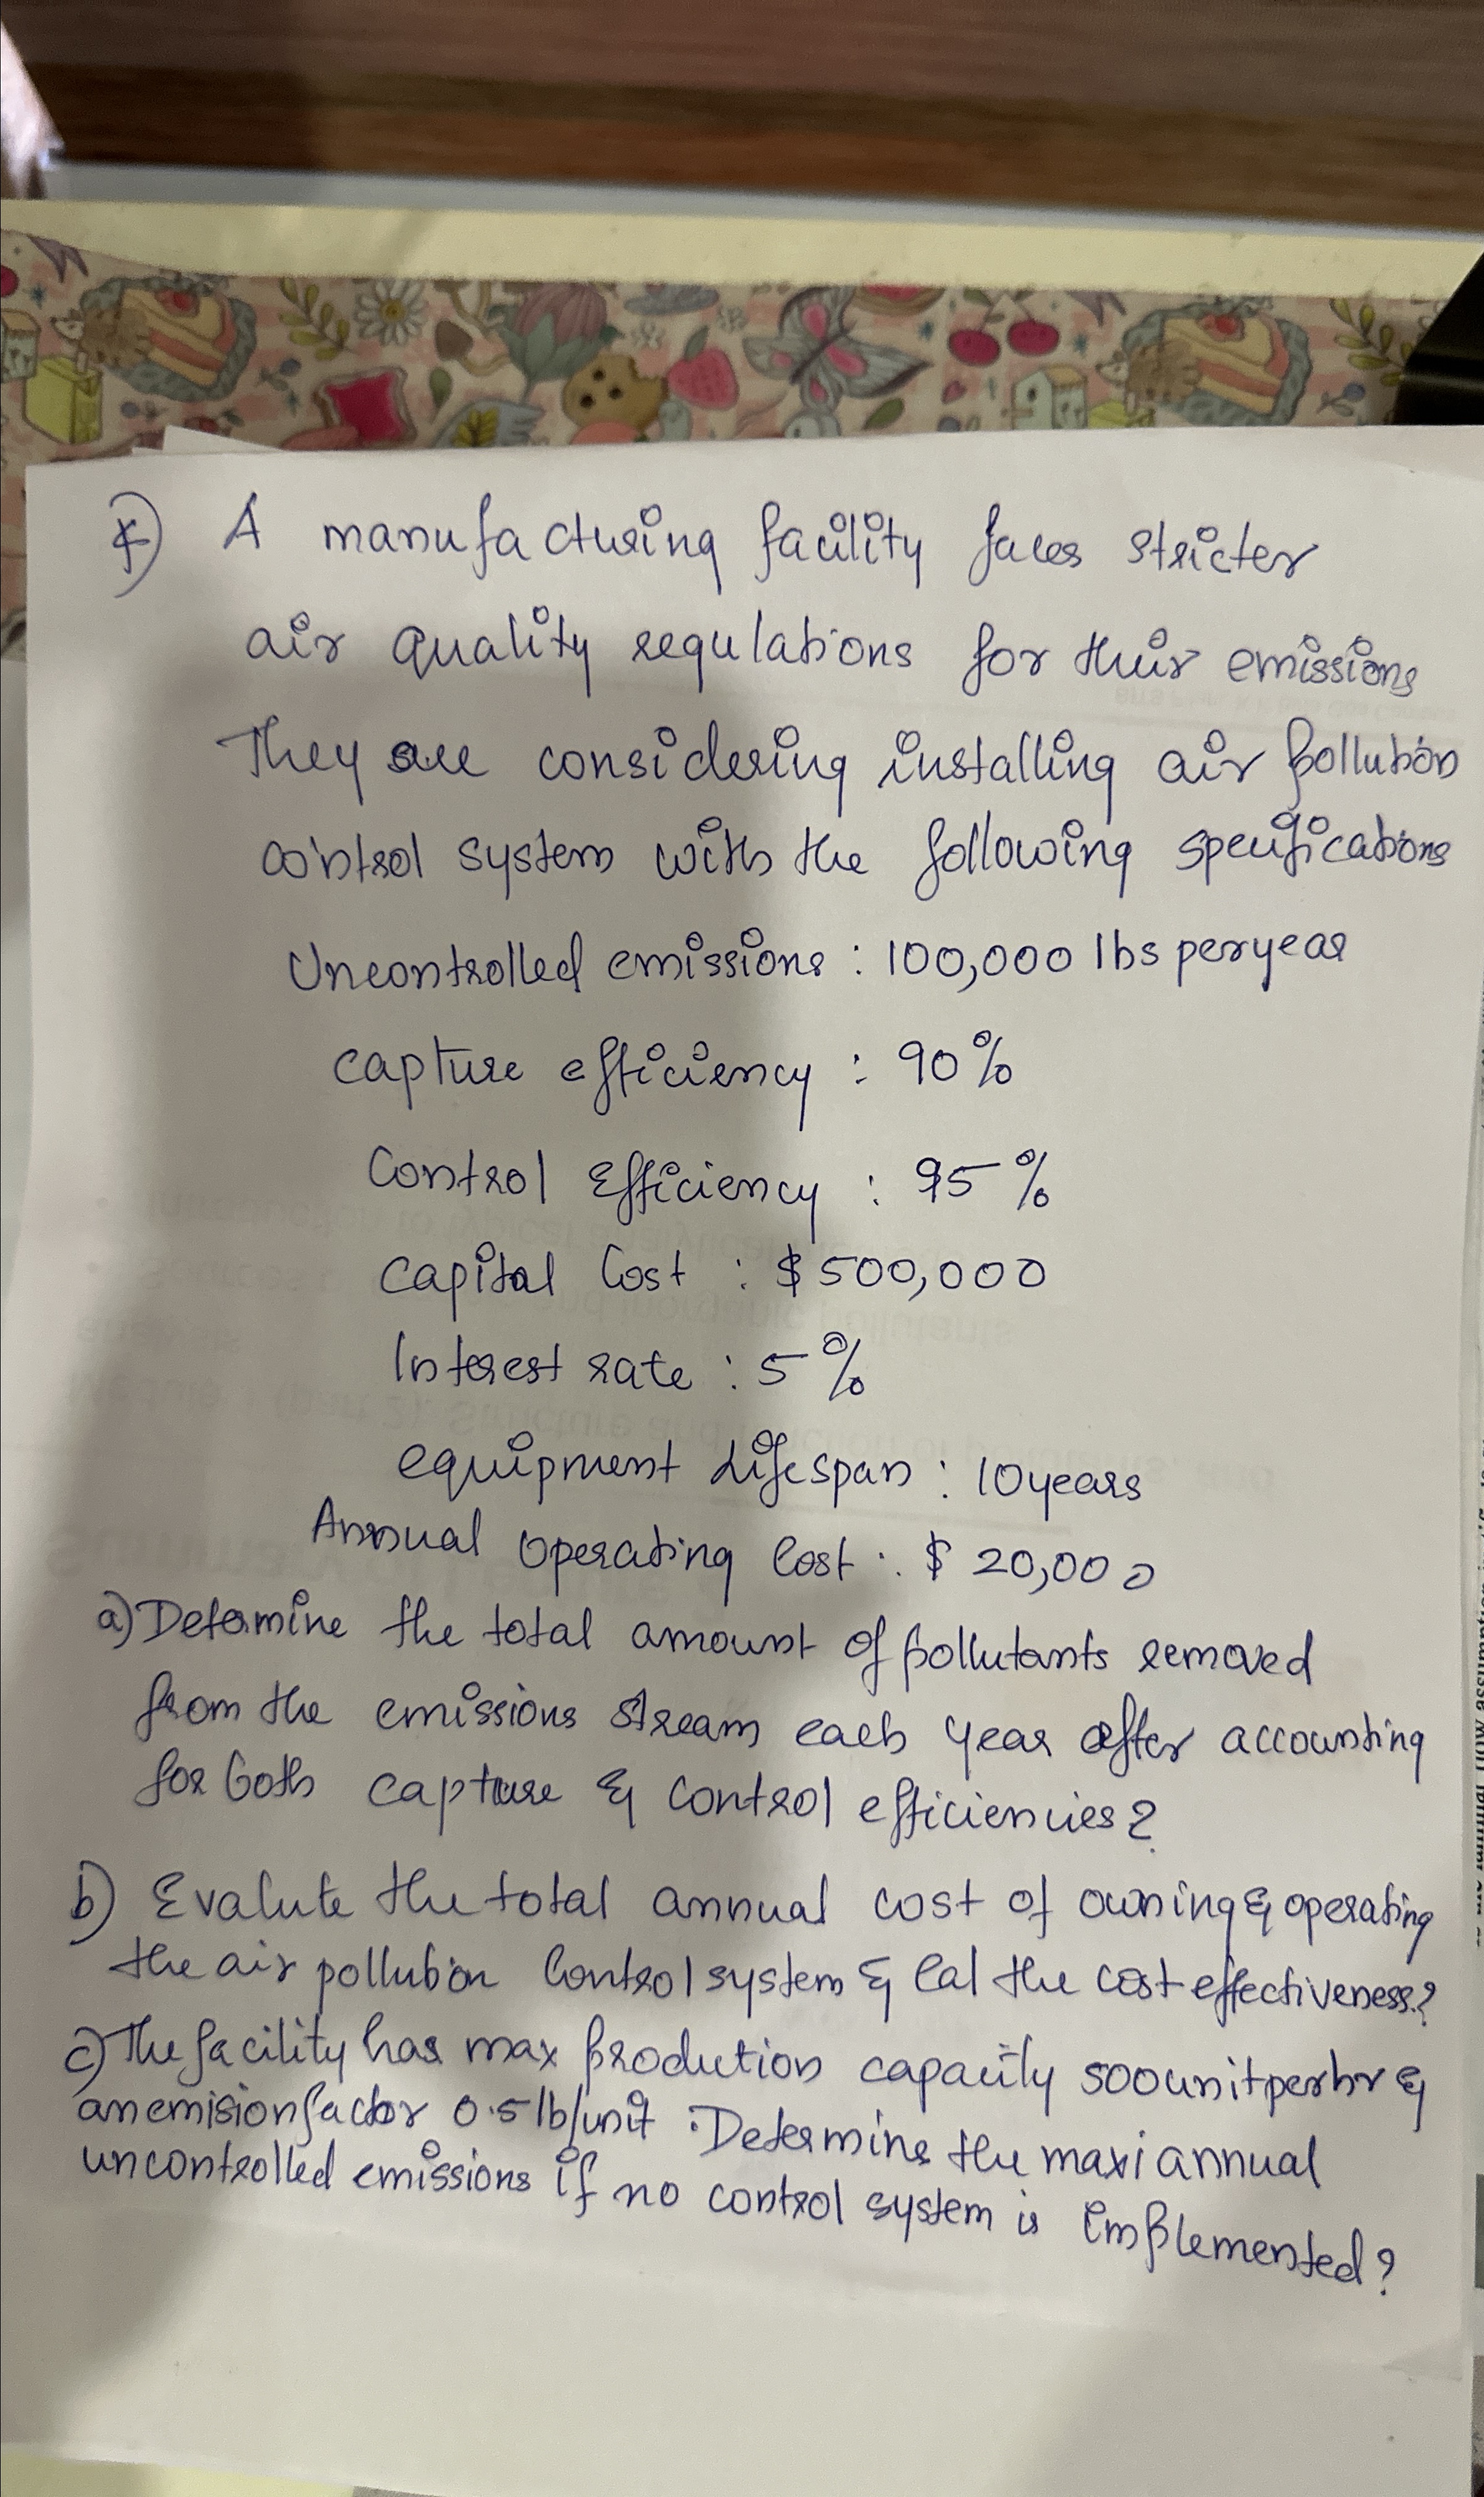 A manufacturing facility faces stricter
air quality regulations for their emissions
They are considering installing air pollution
control system with the following specifications
Uncontrolled emissions : 100,000 lbs per year
capture efficiency : 90%
Control Efficiency : 95%
Capital Cost : $500,000
Interest rate : 5%
equipment Lifespan : 10 years
Annual operating Cost : $ 20,000
a) Determine the total amount of pollutants removed
from the emissions stream each year after accounting
for both capture & control efficiencies?
b) Evalute the total annual cost of owning & operating
the air pollution Control system & Cal the cost effectiveness?
c) The facility has max prodution capacity 500 unit per hr &
an emision factor 0.5 lb/unit . Determine the maxi annual
uncontrolled emissions if no control system is implemented?